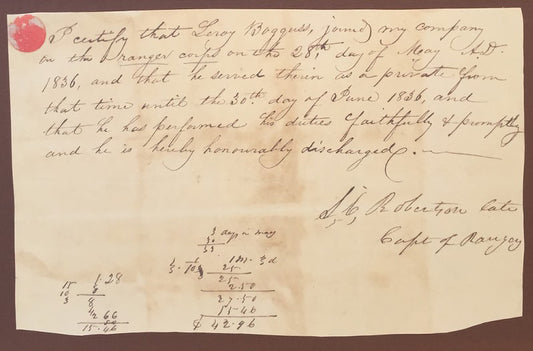 I certify that Leroy Boggues, joined my company
in the ranger corps on the 28th day of May A.D.
1836, and that he served therein as a private from
that time until the 30th day of June 1836, and
that he has performed his duties faithfully & promptly
and he is hereby honourably discharged.
S, C, Robertson late
Capt of Rangers
3 days in May
30
33
1 m. 3 d
25
25
2.50
27.50
15.46
$ 42.96
15 1.28
10 6
3 8
2 66
15.46